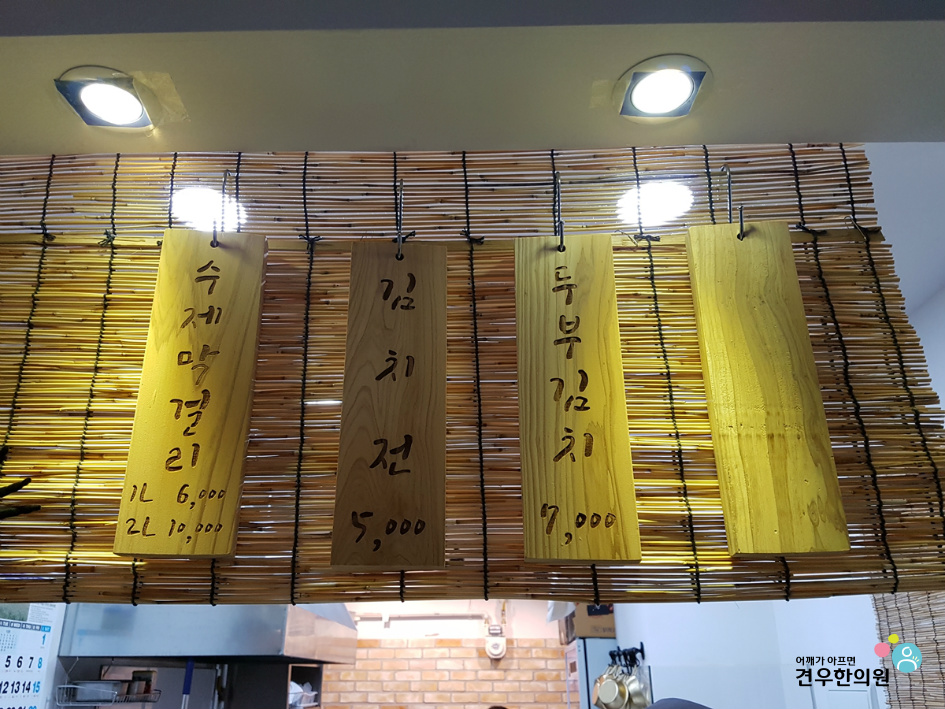 수제막걸리
1L 6,000
2L 10,000
김치전
5,000
두부김치
7,000
1
5 6 7 8
12 13 14 15
어깨가 아프면
견우한의원